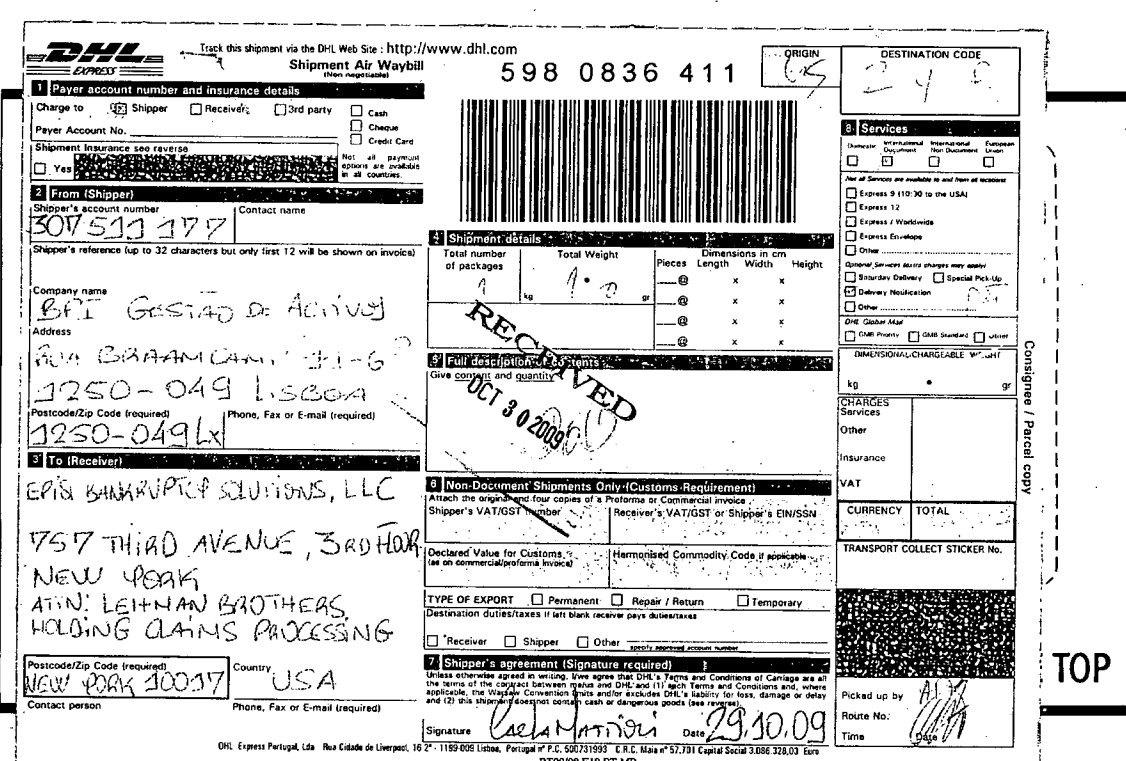 DHL
EXPRESS
Track this shipment via the DHL Web Site : http://www.dhl.com
Shipment Air Waybill
(Non negotiable)
598 0836 411
ORIGIN
DESTINATION CODE
1 Payer account number and insurance details
Charge to Shipper Receiver 3rd party Cash
Cheque
Credit Card
Payer Account No.
Shipment Insurance see reverse
Yes
Not all payment options are available in all countries.
2 From (Shipper)
Shipper's account number
307511177
Contact name
Shipper's reference (up to 32 characters but only first 12 will be shown on invoice)
Company name
BPI GESTÃO DE ACTIVOS
Address
RUA BRAAMCAMP 11-6º
1250-049 LISBOA
Postcode/Zip Code (required)
1250-049 LX
Phone, Fax or E-mail (required)
3 To (Receiver)
EPIQ BANKRUPTCY SOLUTIONS, LLC
757 THIRD AVENUE, 3RD FLOOR
NEW YORK
ATTN: LEHMAN BROTHERS
HOLDING CLAIMS PROCESSING
Postcode/Zip Code (required)
NEW YORK 10017
Country
USA
Contact person
Phone, Fax or E-mail (required)
4 Shipment details
Total number of packages
1
Total Weight
kg 1 • 0 gr
Dimensions in cm
Pieces Length Width Height
@ x x
@ x x
@ x x
@ x x
5 Full description of contents
Give content and quantity
RECEIVED
OCT 30 2009
6 Non-Document Shipments Only (Customs Requirement)
Attach the original and four copies of a Proforma or Commercial invoice
Shipper's VAT/GST number
Receiver's VAT/GST or Shipper's EIN/SSN
Declared Value for Customs
(as on commercial/proforma invoice)
Harmonised Commodity Code if applicable
TYPE OF EXPORT Permanent Repair / Return Temporary
Destination duties/taxes If left blank receiver pays duties/taxes
Receiver Shipper Other
specify approved account number
7 Shipper's agreement (Signature required)
Unless otherwise agreed in writing, I/we agree that DHL's Terms and Conditions of Carriage are all
the terms of the contract between me/us and DHL and (1) such Terms and Conditions and, where
applicable, the Warsaw Convention limits and/or excludes DHL's liability for loss, damage or delay
and (2) this shipment does not contain cash or dangerous goods (see reverse).
Signature
Date 29.10.09
8 Services
Domestic
International Document
International Non Document
European Union
Not all Services are available to and from all locations
Express 9 (10:30 to the USA)
Express 12
Express / Worldwide
Express Envelope
Other
Optional Services (extra charges may apply)
Saturday Delivery Special Pick-Up
Delivery Notification
Other
DHL Global Mail
GMB Priority GMB Standard Other
DIMENSIONAL/CHARGEABLE WEIGHT
kg • gr
CHARGES
Services
Other
Insurance
VAT
CURRENCY TOTAL
TRANSPORT COLLECT STICKER No.
Picked up by
Route No.
Time Date
Consignee / Parcel copy
TOP
DHL Express Portugal, Lda Rua Cidade de Liverpool, 16 2º - 1199-009 Lisboa, Portugal nº P.C. 500731993 C.R.C. Maia nº 57.701 Capital Social 3.086.328,03 Euro